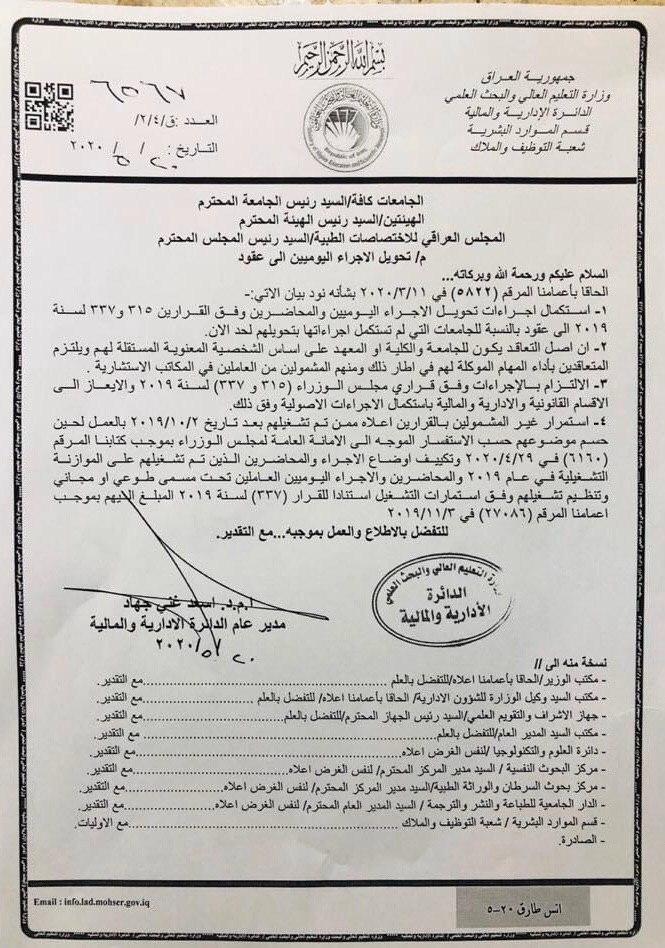 بسم الله الرحمن الرحيم
جمهورية العراق
وزارة التعليم العالي والبحث العلمي
الدائرة الادارية والمالية
قسم الموارد البشرية
شعبة التوظيف والملاك
Republic of Iraq
العدد: ق/٢/٤/ ٦٥٦٧
التاريخ: ٢٠ / ٥ / ٢٠٢٠
الجامعات كافة/السيد رئيس الجامعة المحترم
الهيئتين/السيد رئيس الهيئة المحترم
المجلس العراقي للاختصاصات الطبية/السيد رئيس المجلس المحترم
م/ تحويل الاجراء اليوميين الى عقود
السلام عليكم ورحمة الله وبركاته...
الحاقا بأعمامنا المرقم (٥٨٢٢) في ٢٠٢٠/٣/١١ بشأنه نود بيان الاتي:-
١- استكمال اجراءات تحويل الاجراء اليوميين والمحاضرين وفق القرارين ٣١٥ و٣٣٧ لسنة
٢٠١٩ الى عقود بالنسبة للجامعات التي لم تستكمل اجراءاتها بتحويلهم لحد الان.
٢- ان اصل التعاقد يكون للجامعة والكلية او المعهد على اساس الشخصية المعنوية المستقلة لهم ويلتزم
المتعاقدين بأداء المهام الموكلة لهم في اطار ذلك ومنهم المشمولين من العاملين في المكاتب الاستشارية.
٣- الالتزام بالإجراءات وفق قراري مجلس الوزراء (٣١٥ و ٣٣٧) لسنة ٢٠١٩ والايعاز الى
الاقسام القانونية والادارية والمالية باستكمال الاجراءات الاصولية وفق ذلك.
٤- استمرار غير المشمولين بالقرارين اعلاه ممن تم تشغيلهم بعد تاريخ ٢٠١٩/١٠/٢ بالعمل لحين
حسم موضوعهم حسب الاستفسار الموجه الى الامانة العامة لمجلس الوزراء بموجب كتابنا المرقم
(٦١٦٠) في ٢٠٢٠/٤/٢٩ وتكييف اوضاع الاجراء والمحاضرين الذين تم تشغيلهم على الموازنة
التشغيلية في عام ٢٠١٩ والمحاضرين والاجراء اليوميين العاملين تحت مسمى طوعي او مجاني
وتنظيم تشغيلهم وفق استمارات التشغيل استنادا للقرار (٣٣٧) لسنة ٢٠١٩ المبلغ اليهم بموجب
اعمامنا المرقم (٢٧٠٨٦) في ٢٠١٩/١١/٣
للتفضل بالاطلاع والعمل بموجبه...مع التقدير.
وزارة التعليم العالي والبحث العلمي
الدائرة
الأدارية والمالية
ا.م.د. اسعد غني جهاد
مدير عام الدائرة الادارية والمالية
٢٠ / ٥ / ٢٠٢٠
نسخة منه الى //
- مكتب الوزير/الحاقا بأعمامنا اعلاه/للتفضل بالعلم ........ مع التقدير.
- مكتب السيد وكيل الوزارة للشؤون الادارية/ الحاقا بأعمامنا اعلاه/ للتفضل بالعلم ........ مع التقدير.
- جهاز الاشراف والتقويم العلمي/السيد رئيس الجهاز المحترم/للتفضل بالعلم ........ مع التقدير.
- مكتب السيد المدير العام/للتفضل بالعلم ........ مع التقدير.
- دائرة العلوم والتكنولوجيا /لنفس الغرض اعلاه ........ مع التقدير.
- مركز البحوث النفسية / السيد مدير المركز المحترم/ لنفس الغرض اعلاه ........ مع التقدير.
- مركز بحوث السرطان والوراثة الطبية/السيد مدير المركز المحترم/ لنفس الغرض اعلاه ........ مع التقدير.
- الدار الجامعية للطباعة والنشر والترجمة / السيد المدير العام المحترم/ لنفس الغرض اعلاه ........ مع التقدير.
- قسم الموارد البشرية / شعبة التوظيف والملاك ........ مع الاوليات.
- الصادرة.
Email : info.lad.mohser.gov.iq
انس طارق ٢٠-٥